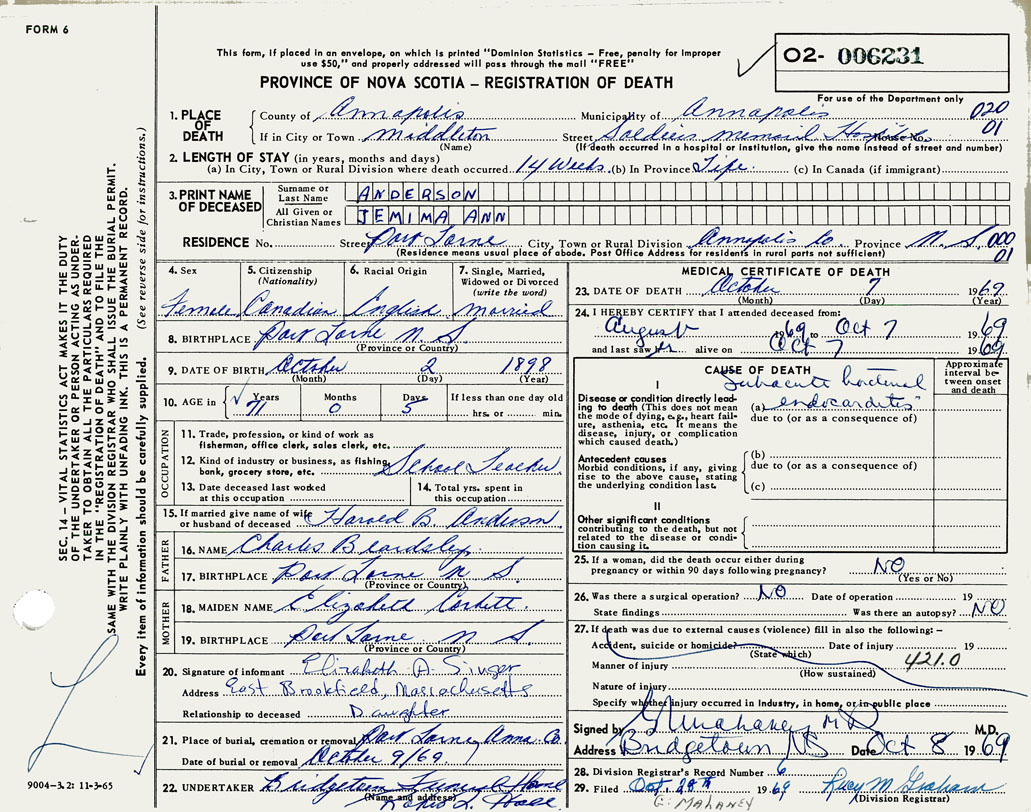 FORM 6
This form, if placed in an envelope, on which is printed "Dominion Statistics – Free, penalty for improper
use $50," and properly addressed will pass through the mail "FREE"
PROVINCE OF NOVA SCOTIA – REGISTRATION OF DEATH
02- 006231
For use of the Department only
1. PLACE OF DEATH County of Annapolis Municipality of Annapolis 020
If in City or Town Middleton Street Soldiers Memorial Hospital House No. 01
(Name) (If death occurred in a hospital or institution, give the name instead of street and number)
2. LENGTH OF STAY (in years, months and days)
(a) In City, Town or Rural Division where death occurred 14 Weeks (b) In Province Life (c) In Canada (if immigrant)
3. PRINT NAME OF DECEASED Surname or Last Name ANDERSON
All Given or Christian Names JEMIMA ANN
RESIDENCE No. Street Port Lorne City, Town or Rural Division Annapolis Co Province N. S. 000
(Residence means usual place of abode. Post Office Address for residents in rural parts not sufficient) 01
4. Sex 5. Citizenship (Nationality) 6. Racial Origin 7. Single, Married, Widowed or Divorced (write the word)
Female Canadian English Married
8. BIRTHPLACE Port Lorne N. S.
(Province or Country)
9. DATE OF BIRTH October 2 1898
(Month) (Day) (Year)
10. AGE in Years Months Days If less than one day old
71 0 5 hrs. or min.
OCCUPATION
11. Trade, profession, or kind of work as
fisherman, office clerk, sales clerk, etc.
12. Kind of industry or business, as fishing,
bank, grocery store, etc. School Teacher
13. Date deceased last worked at this occupation
14. Total yrs. spent in this occupation
15. If married give name of wife
or husband of deceased Harold B. Anderson
FATHER
16. NAME Charles Beardsley
17. BIRTHPLACE Port Lorne N. S.
(Province or Country)
MOTHER
18. MAIDEN NAME Elizabeth Corbett
19. BIRTHPLACE Port Lorne N S
(Province or Country)
20. Signature of informant Elizabeth A. Singer
Address East Brookfield, Massachusetts
Relationship to deceased Daughter
21. Place of burial, cremation or removal Port Lorne, Anna Co.
Date of burial or removal October 9/69
22. UNDERTAKER Bridgetown Funeral Home
(Name and address)
MEDICAL CERTIFICATE OF DEATH
23. DATE OF DEATH October 7 1969
(Month) (Day) (Year)
24. I HEREBY CERTIFY that I attended deceased from:
August 1969 to Oct 7 1969
and last saw alive on Oct 7 1969
CAUSE OF DEATH
Approximate interval between onset and death
I
Subacute bacterial
Disease or condition directly leading to death (This does not mean the mode of dying, e.g., heart failure, asthenia, etc. It means the disease, injury, or complication which caused death.)
(a) endocarditis
due to (or as a consequence of)
Antecedent causes
Morbid conditions, if any, giving rise to the above cause, stating the underlying condition last.
(b)
due to (or as a consequence of)
(c)
II
Other significant conditions
contributing to the death, but not related to the disease or condition causing it.
25. If a woman, did the death occur either during
pregnancy or within 90 days following pregnancy? NO
(Yes or No)
26. Was there a surgical operation? NO Date of operation 19
State findings Was there an autopsy? NO
27. If death was due to external causes (violence) fill in also the following: –
Accident, suicide or homicide? Date of injury 19
(State which)
Manner of injury 421.0
(How sustained)
Nature of injury
Specify whether injury occurred in Industry, in home, or in public place
Signed by G Mahaney MD M.D.
Address Bridgetown NS Date Oct 8 1969
28. Division Registrar's Record Number 6
29. Filed Oct. 28th 1969 Lucy M Graham
(Division Registrar)
G. MAHANEY
SEC. 14 – VITAL STATISTICS ACT MAKES IT THE DUTY
OF THE UNDERTAKER OR PERSON ACTING AS UNDER-
TAKER TO OBTAIN ALL THE PARTICULARS REQUIRED
IN THE "REGISTRATION OF DEATH" AND TO FILE THE
SAME WITH THE DIVISION REGISTRAR WHO SHALL ISSUE THE BURIAL PERMIT.
WRITE PLAINLY WITH UNFADING INK. THIS IS A PERMANENT RECORD.
Every item of information should be carefully supplied. (See reverse side for instructions.)
9004-3.2: 11-3-65